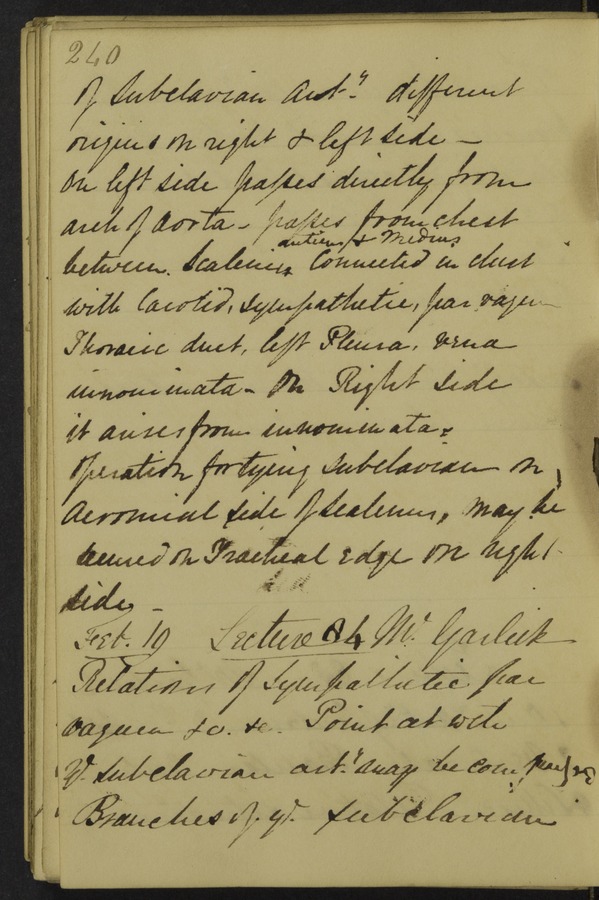 240
of Subclavian Art.y different
origins on right & left side —
On left side passes directly from
arch of Aorta - passes from chest
anticus & Medius
between Scalenus Connected in chest
with Carotid, Sympathetic, par vagum
Thoracic duct, left Pleura, vena
innominata - On Right side
it arises from innominata,
Operation for tying subclavian on
Acromial side of Scalenus, may be
on Tracheal edge on right
side -
Feb. 19 Lecture 84 Mr. Garlick
Relations of Sympathetic par
vagum &c. &c. Point at wch
ye. subclavian art.y may be
Branches of ye. Subclavian